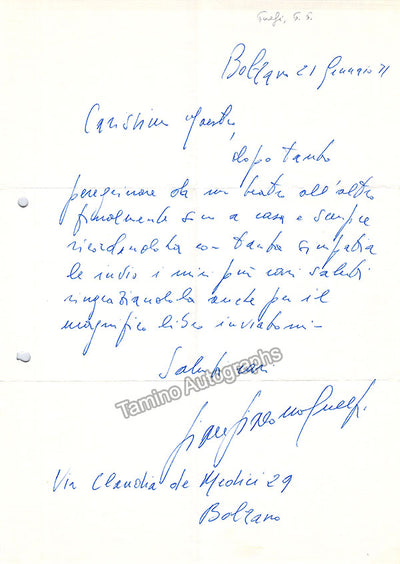 Guelfi, G. G.
Bolzano 21 Gennaio 71
Carissimo Maestro,
dopo tanto
peregrinare da un teatro all'altro
finalmente sono a casa e sempre
ricordandola con tanta simpatia
le invio i miei più cari saluti
ringraziandola anche per il
magnifico libro inviatomi -
Saluti cari
Tamino Autographs
Giangiacomo Guelfi
Via Claudia de Medici 29
Bolzano